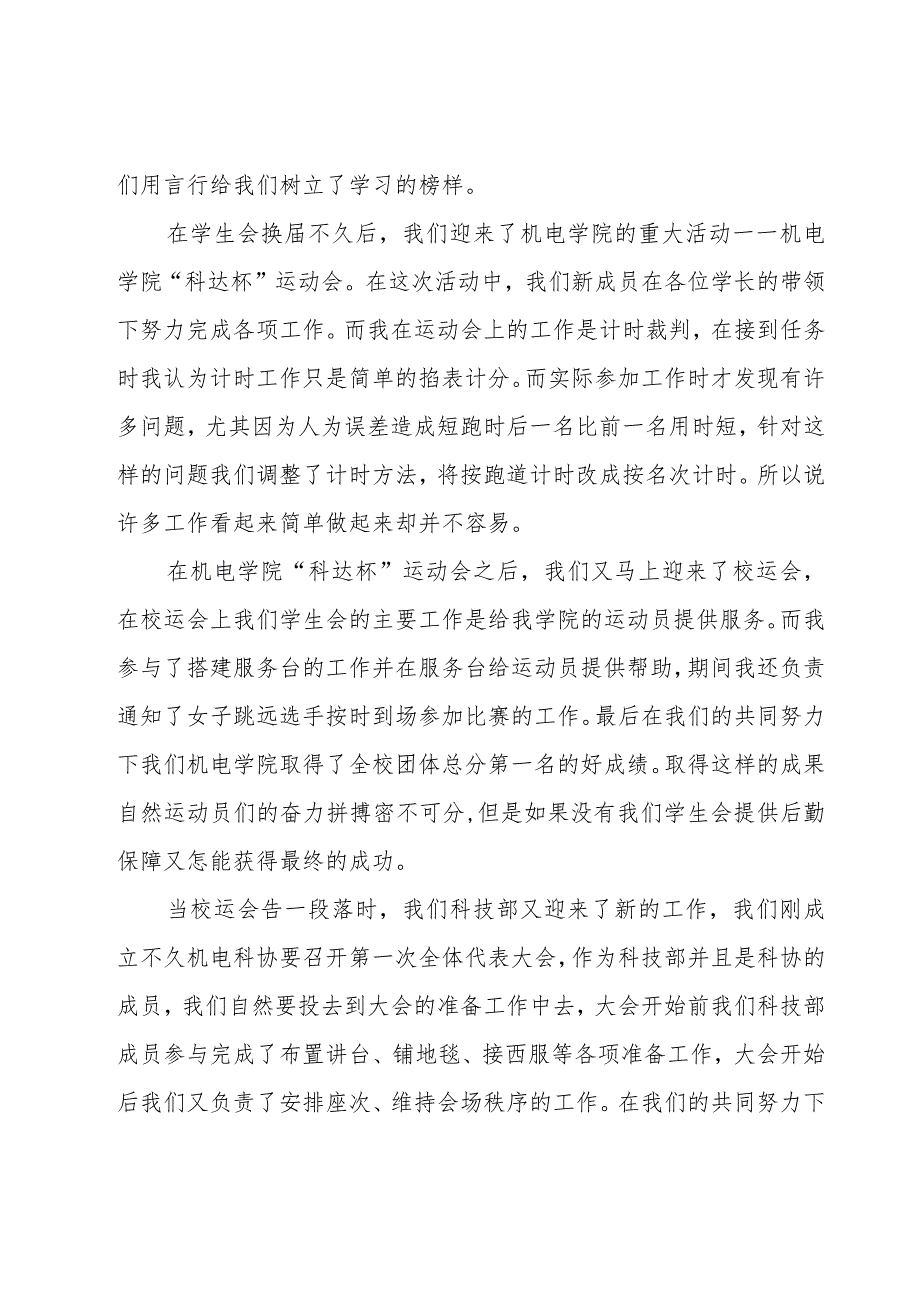 们用言行给我们树立了学习的榜样。
在学生会换届不久后，我们迎来了机电学院的重大活动一一机电
学院“科达杯”运动会。在这次活动中，我们新成员在各位学长的带领
下努力完成各项工作。而我在运动会上的工作是计时裁判，在接到任务
时我认为计时工作只是简单的掐表计分。而实际参加工作时才发现有许
多问题，尤其因为人为误差造成短跑时后一名比前一名用时短，针对这
样的问题我们调整了计时方法，将按跑道计时改成按名次计时。所以说
许多工作看起来简单做起来却并不容易。
在机电学院“科达杯”运动会之后，我们又马上迎来了校运会，
在校运会上我们学生会的主要工作是给我学院的运动员提供服务。而我
参与了搭建服务台的工作并在服务台给运动员提供帮助，期间我还负责
通知了女子跳远选手按时到场参加比赛的工作。最后在我们的共同努力
下我们机电学院取得了全校团体总分第一名的好成绩。取得这样的成果
自然运动员们的奋力拼搏密不可分,但是如果没有我们学生会提供后勤
保障又怎能获得最终的成功。
当校运会告一段落时，我们科技部又迎来了新的工作，我们刚成
立不久机电科协要召开第一次全体代表大会，作为科技部并且是科协的
成员，我们自然要投去到大会的准备工作中去，大会开始前我们科技部
成员参与完成了布置讲台、铺地毯、接西服等各项准备工作，大会开始
后我们又负责了安排座次、维持会场秩序的工作。在我们的共同努力下